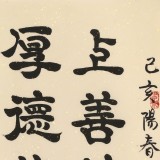 己亥陽春
上善
厚德